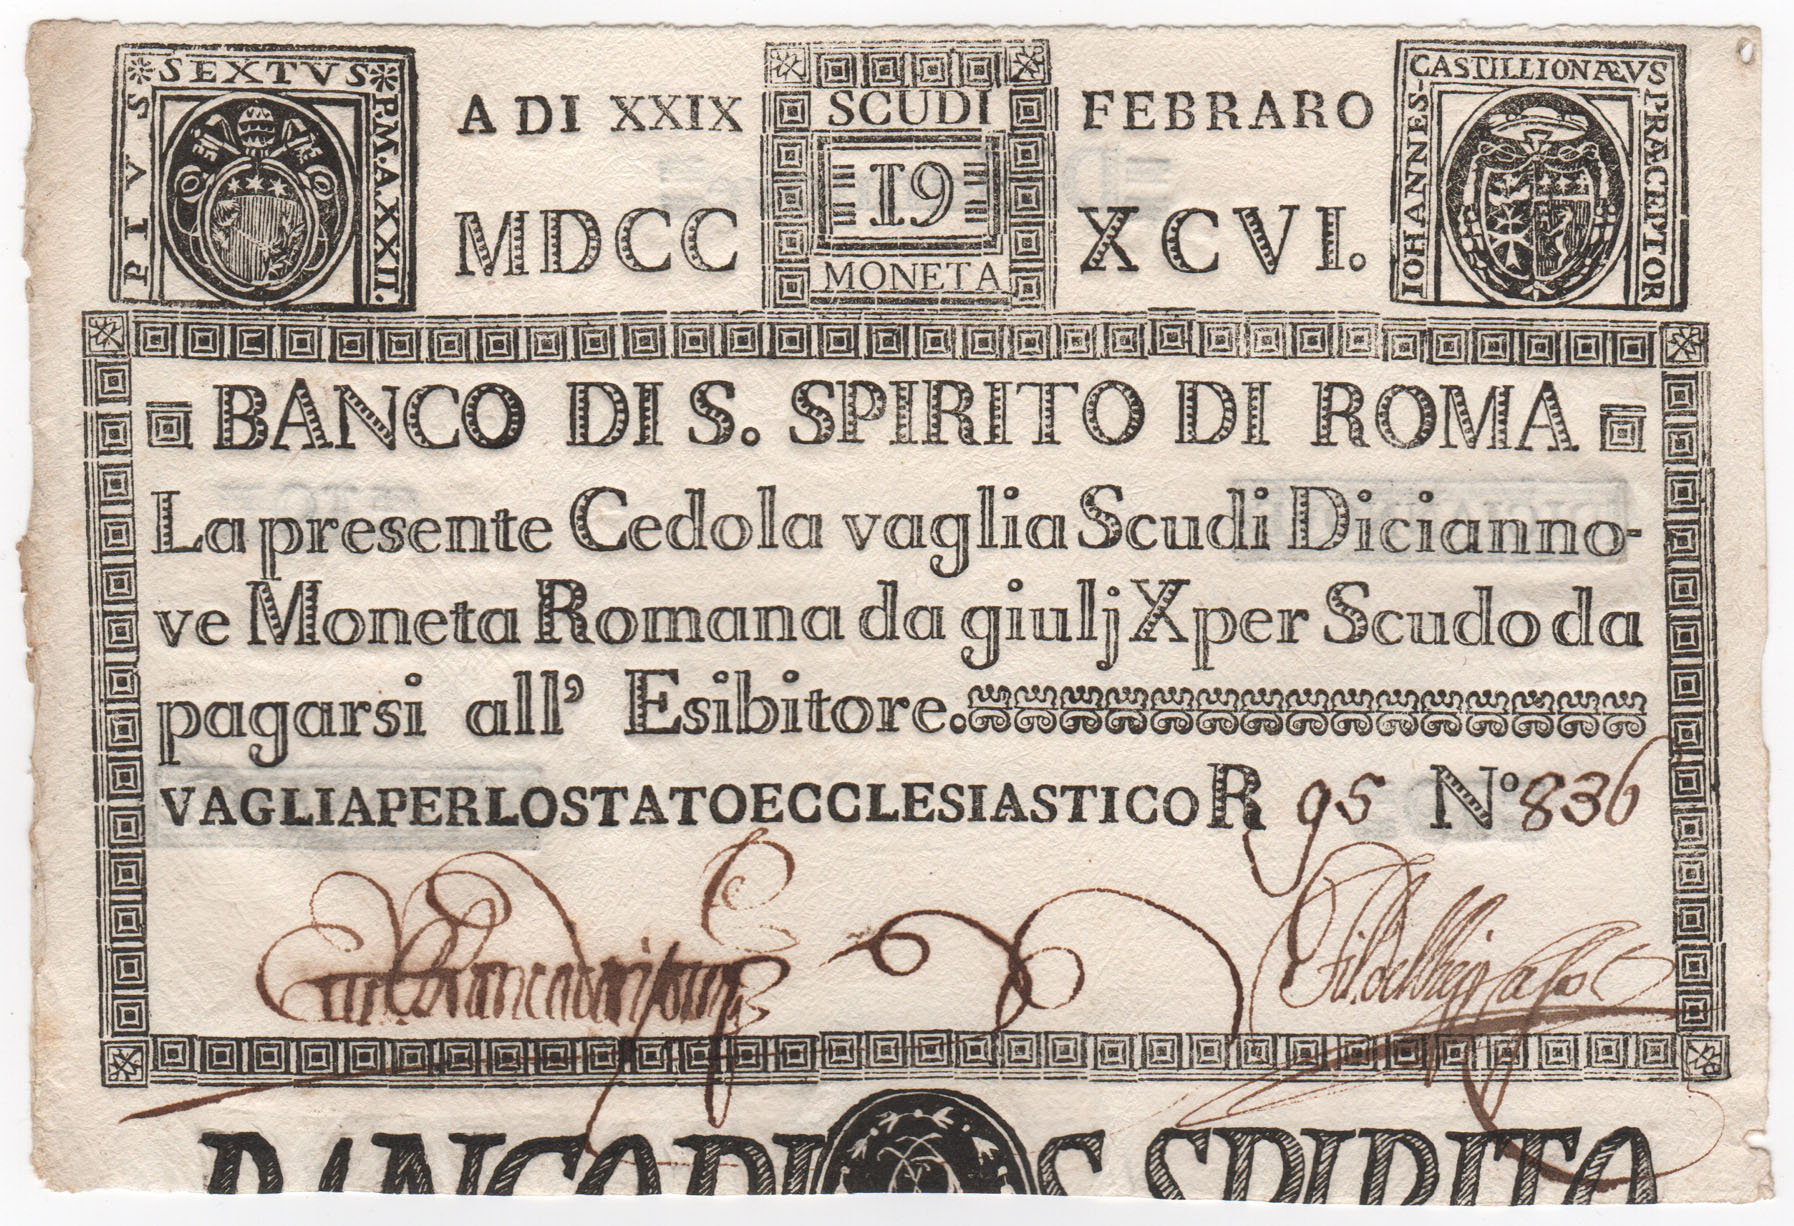 PIVS SEXTVS P.M.A.XXII.
A DI XXIX FEBRARO
MDCC XCVI.
SCUDI
19
MONETA
IOHANNES CASTILLIONÆVS PRÆCEPTOR
BANCO DI S. SPIRITO DI ROMA
La presente Cedola vaglia Scudi Dicianno-
ve Moneta Romana da giulj X per Scudo da
pagarsi all' Esibitore.
VAGLIA PER LO STATO ECCLESIASTICO R 95 Nº 836
BANCO DI S. SPIRITO